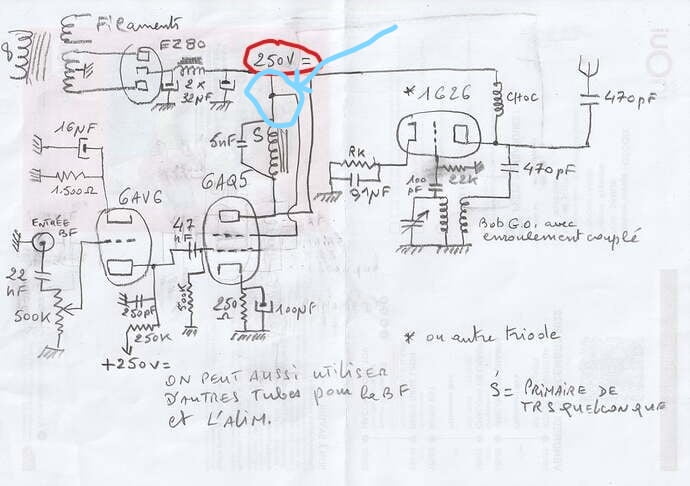 Filaments
EZ80
250V=
2 x
32µF
* 1626
CHOC
470pF
16µF
5nF
S
RK
0,1µF
100
pF
22K
470pF
1.500Ω
6AV6
6AQ5
ENTRÉE
BF
47
nF
Bob G.O. avec
enroulement couplé
22
nF
500K
250pF
250K
500K
250
Ω
100µF
+250V=
* ou autre triode
ON PEUT AUSSI UTILISER
D'AUTRES TUBES pour la BF
et L'ALIM.
S = PRIMAIRE DE
TRS QUELCONQUE